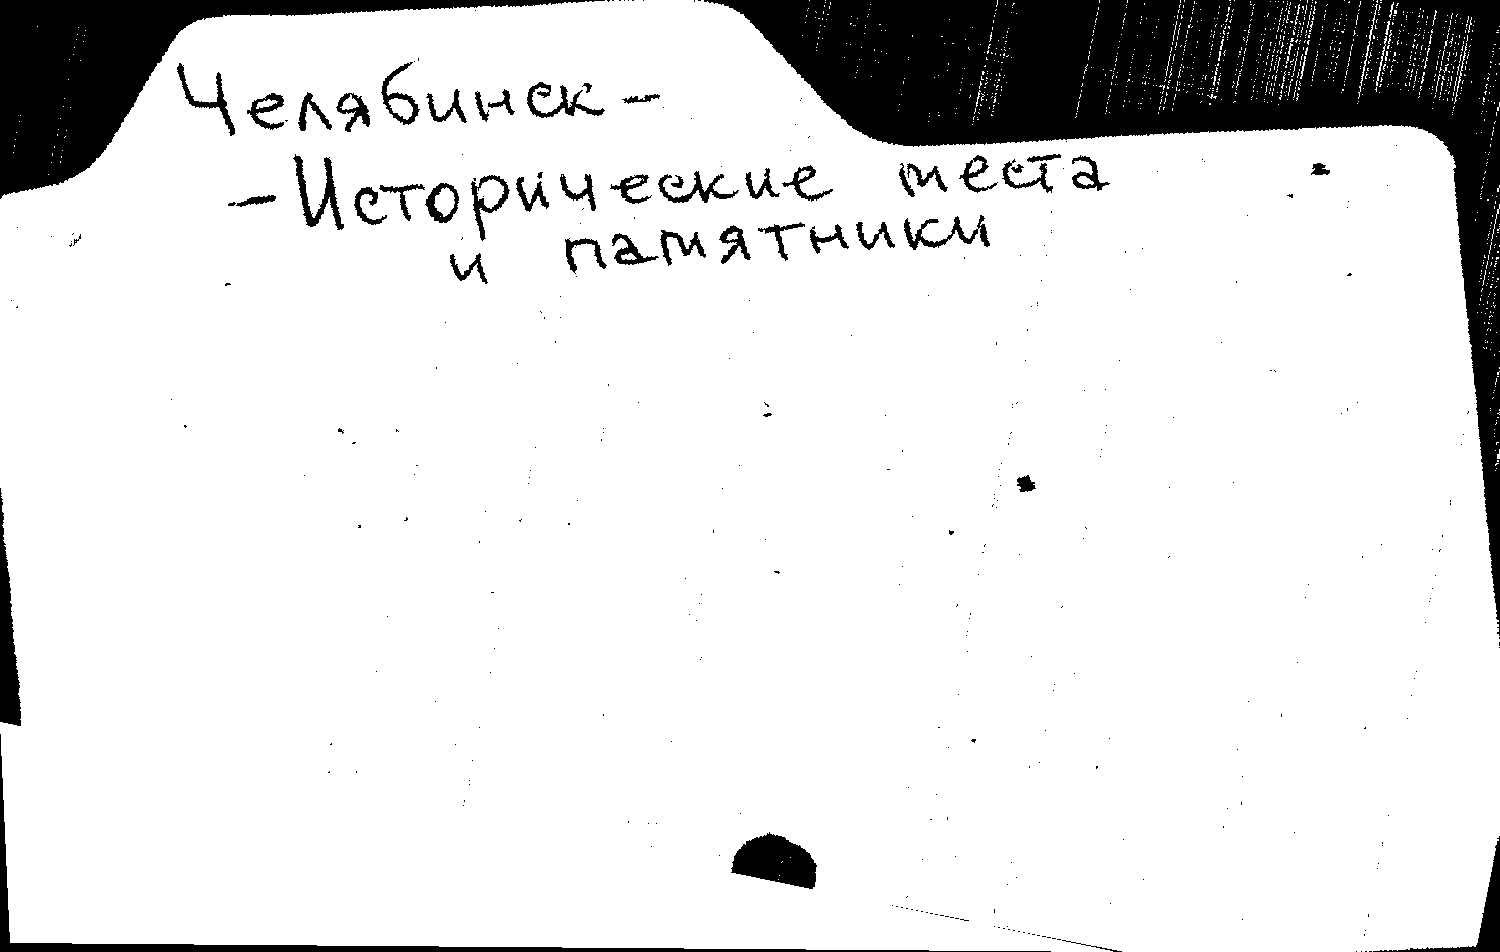 Челябинск -
- Исторические места
и памятники